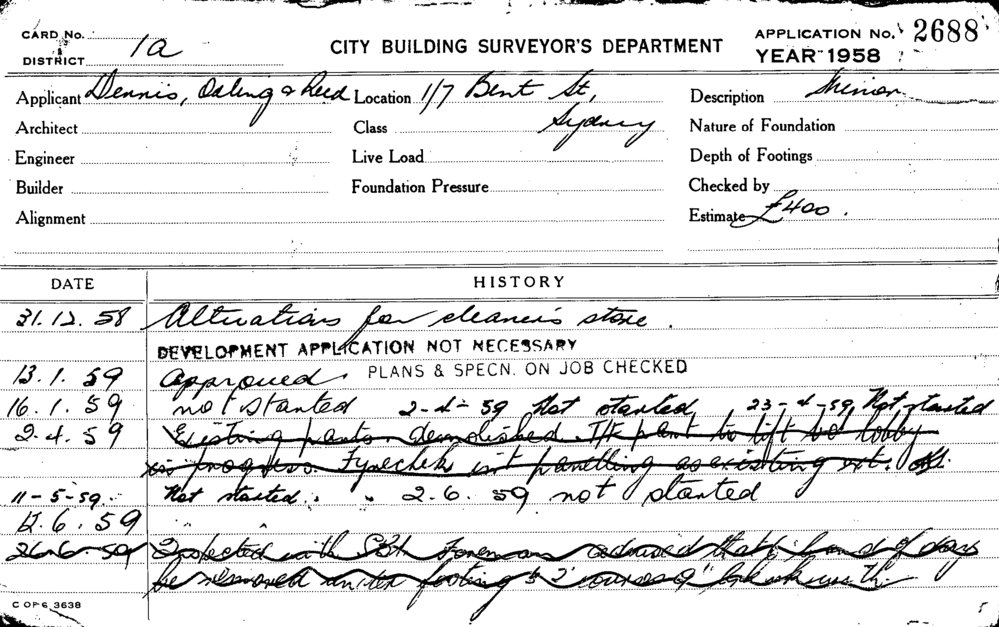 CARD No.
DISTRICT 1a
CITY BUILDING SURVEYOR'S DEPARTMENT
APPLICATION No. 2688
YEAR 1958
Applicant Dennis, & Reed Location 1/7 Bent St, Description
Architect Class Sydney Nature of Foundation
Engineer Live Load Depth of Footings
Builder Foundation Pressure Checked by
Alignment Estimate £400.
DATE HISTORY
31.12.58 Alterations for cleaner's store.
DEVELOPMENT APPLICATION NOT NECESSARY
13.1.59 Approved. PLANS & SPECN. ON JOB CHECKED
16.1.59 not started 2-4-59 Not started 23-4-59 Not started
2.4.59 Existing demolished to lift lobby
in progress. panelling as existing
11-5-59. Not started. 2.6.59 not started
12.6.59
26-6-59 Inspected with Foreman advised that
be removed under footing
C OF S 3638